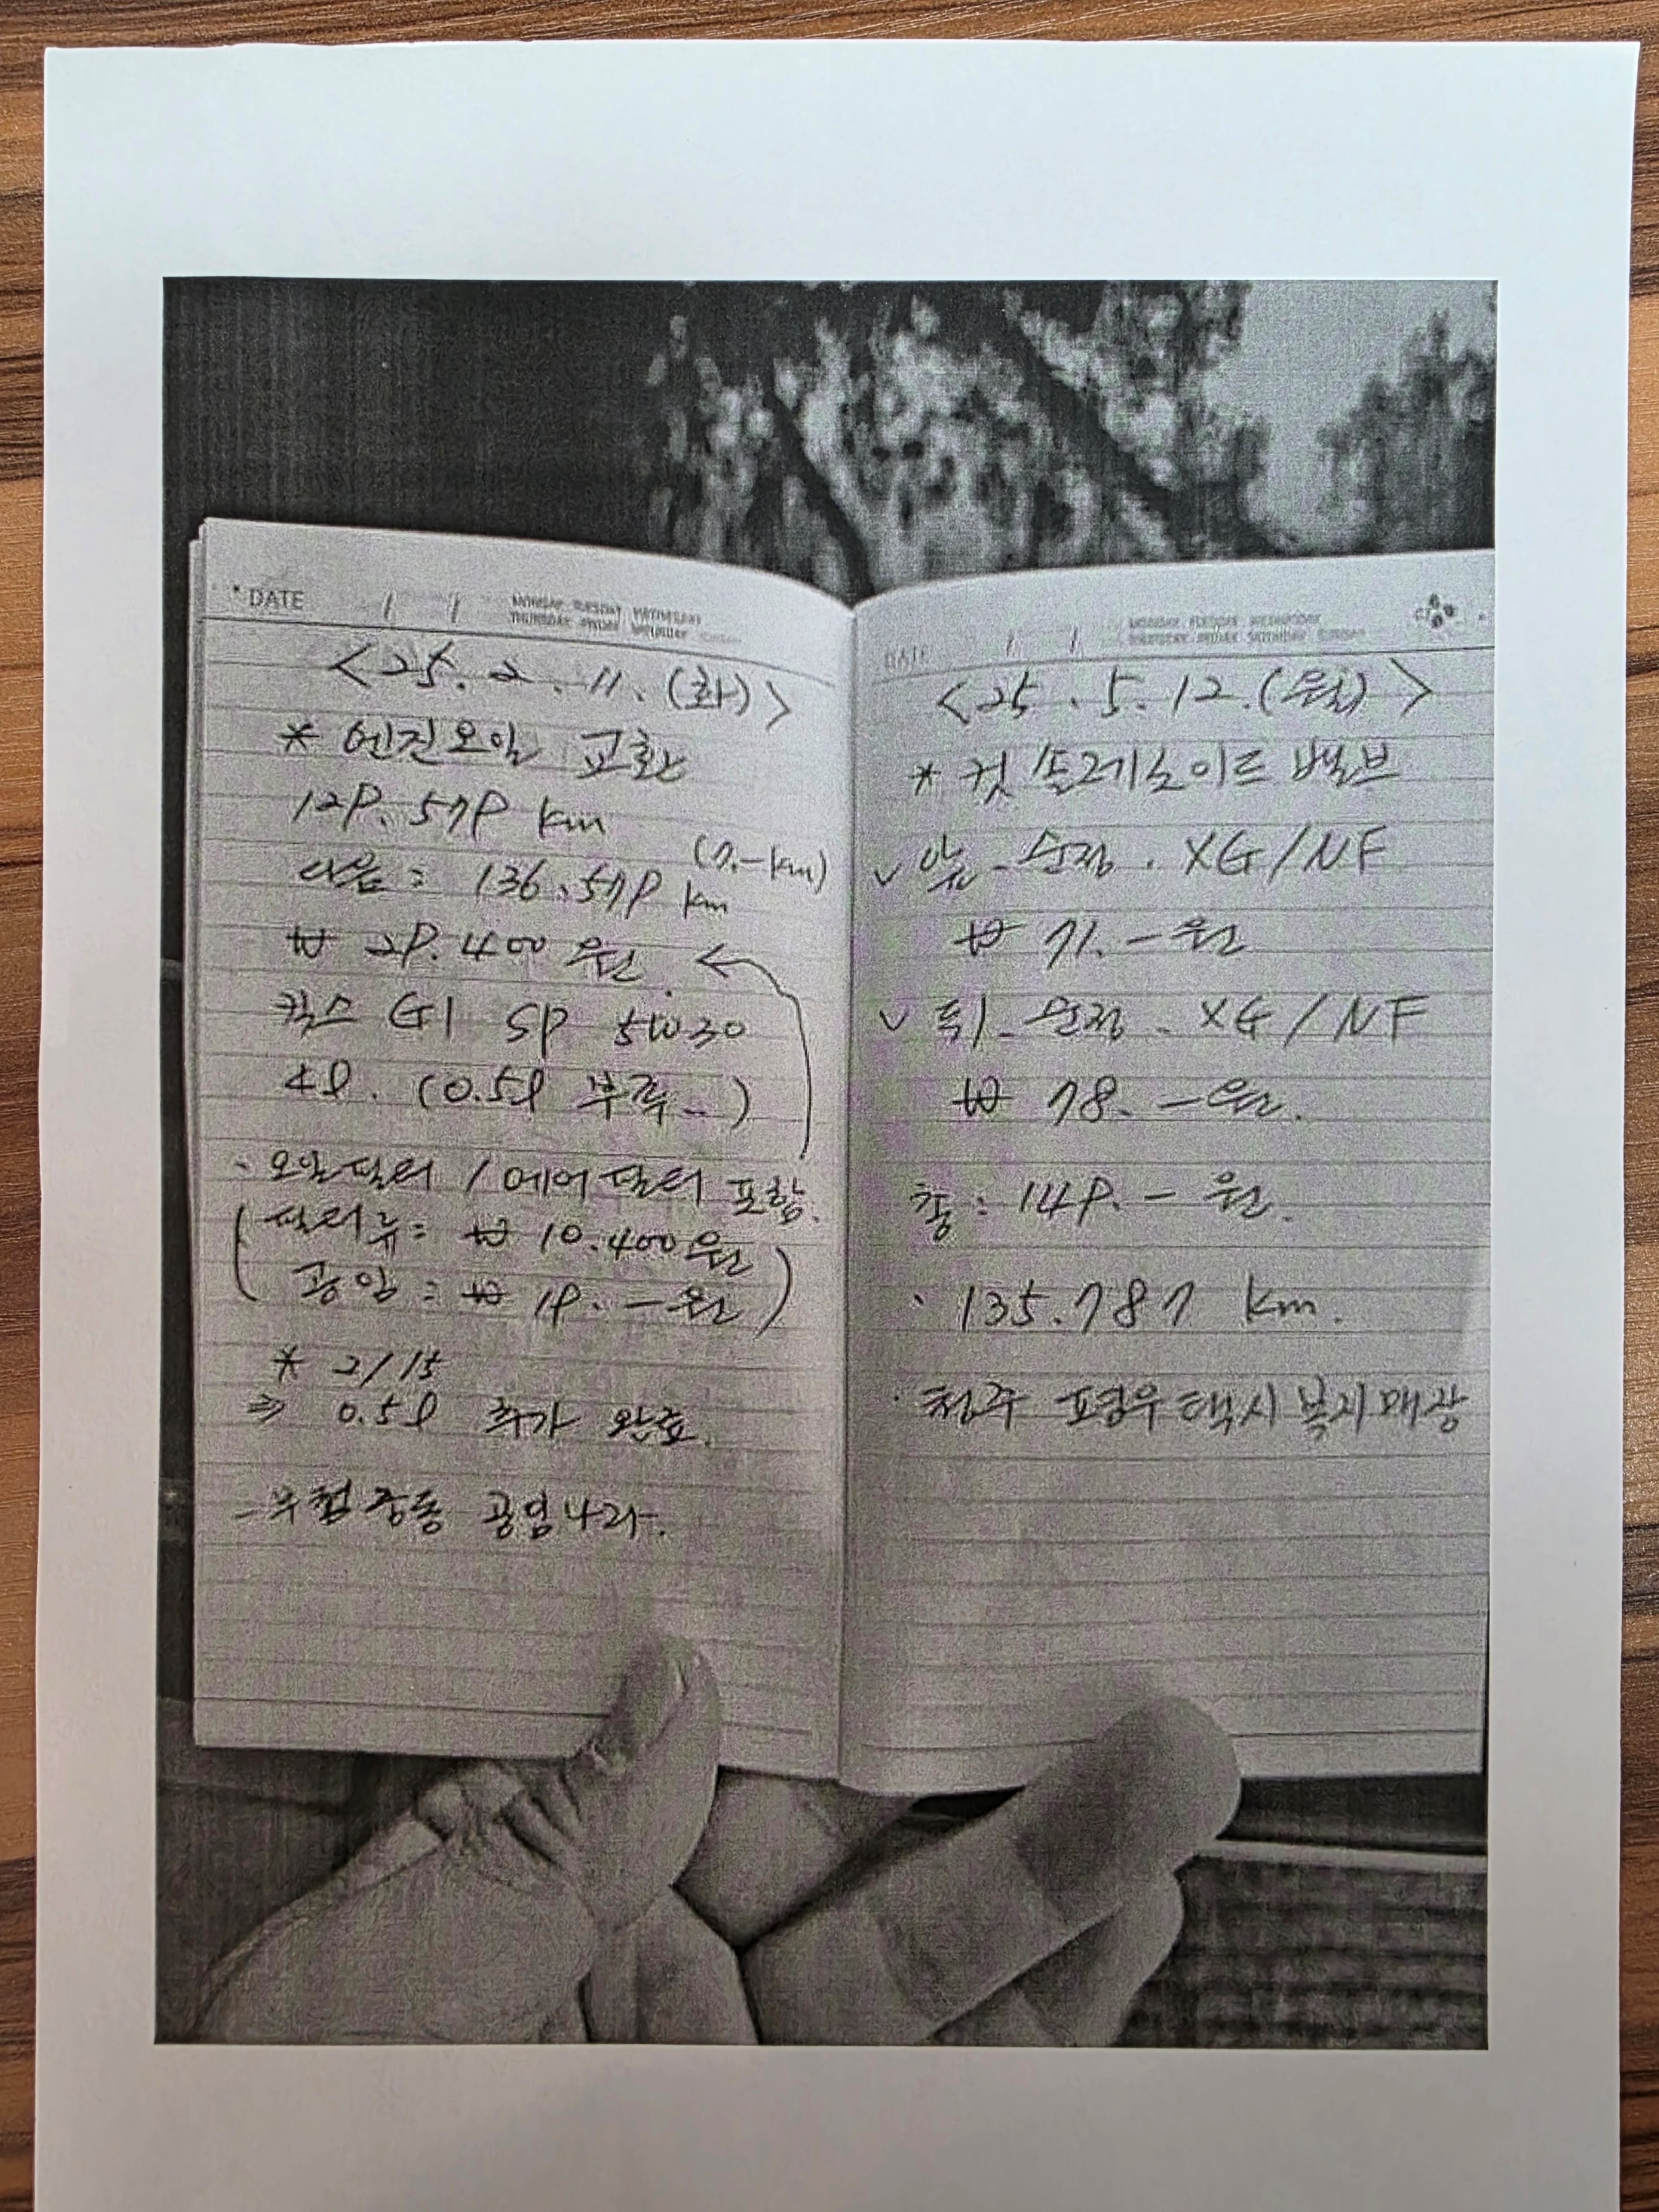 DATE / /
MONDAY TUESDAY WEDNESDAY
THURSDAY FRIDAY SATURDAY SUNDAY
<25. 2. 11. (화)>
* 엔진오일 교환
129. 579 km
(7.- km)
다음 : 136.579 km
₩ 29.400 원.
킥스 G1 SP 5W30
4ℓ. (0.5ℓ 부족_)
· 오일필터 / 에어필터 포함.
(필터류 : ₩ 10.400원
공임 : ₩ 19. - 원)
* 2/15
⇒ 0.5ℓ 추가 완료.
- 공임나라.
DATE / /
MONDAY TUESDAY WEDNESDAY
THURSDAY FRIDAY SATURDAY SUNDAY
<25 . 5. 12. (월)>
* 컷 솔레노이드 밸브
√ 앞 - 순정 . XG/NF
₩ 71. - 원
√ 뒤 - 순정 - XG/NF
₩ 78. - 원.
총 : 149. - 원.
· 135.787 km.
· 청주 택시복지매장